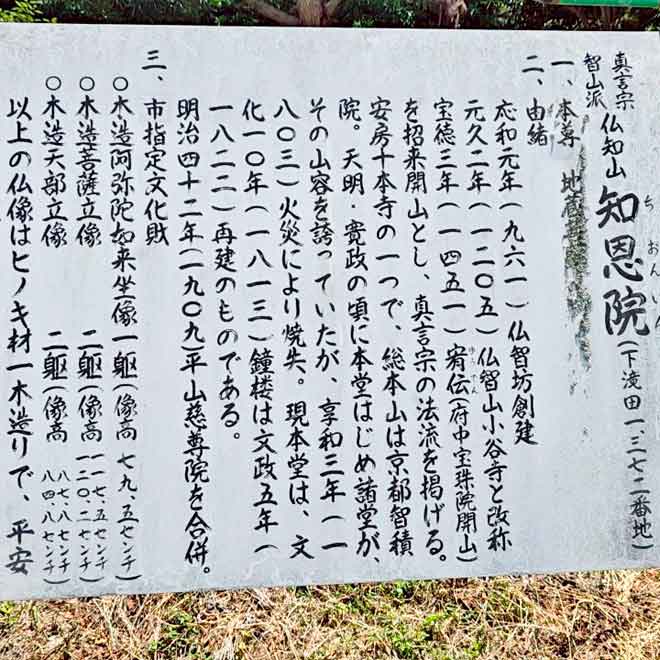 真言宗
智山派
仏知山
知恩院
ち おん いん
(下滝田一、三七二番地)
一、本尊 地蔵
二、由緒
応和元年(九六一)仏智坊創建
元久二年(一二〇五)仏智山小谷寺と改称
宝徳三年(一四五一)宥伝(府中宝珠院開山)
を招来開山とし、真言宗の法流を掲げる。
安房十本寺の一つで、総本山は京都智積
院。天明・寛政の頃に本堂はじめ諸堂が、
その山容を誇っていたが、享和三年(一
八〇三)火災により焼失。現本堂は、文
化一〇年(一八一三)鐘楼は文政五年(
一八二二)再建のものである。
明治四十二年(一九〇九)平山慈尊院を合併。
三、市指定文化財
〇木造阿弥陀如来坐像一軀(像高 七九、五センチ)
〇木造菩薩立像 二軀(像高 一一七、五センチ 一二〇、二センチ)
〇木造天部立像 二軀(像高 八七、八センチ 八四、八センチ)
以上の仏像はヒノキ材一木造りで、平安